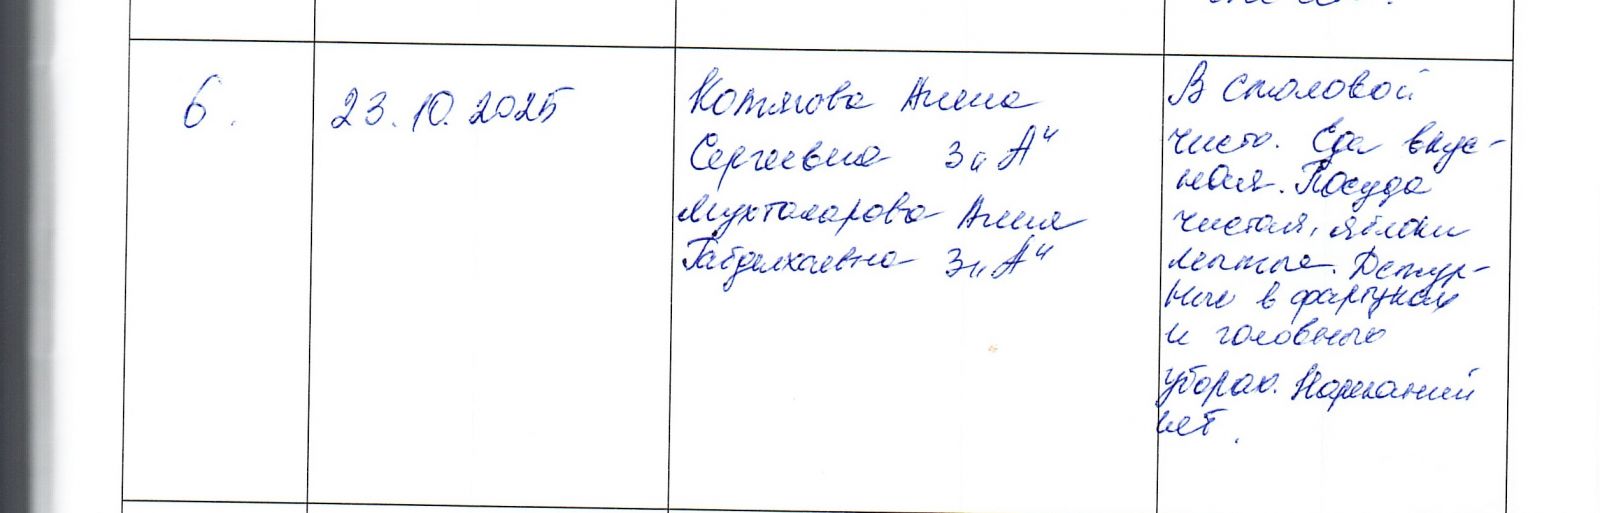 6.
23.10.2025
Котягова Алена
Сергеевна 3 „А"
Мухтахарова Алия
Габдулхаевна 3 „А"
В столовой
чисто. Еда вкус-
ная. Посуда
чистая, яблоки
мытые. Дежур-
ные в фартуках
и головных
уборах. Нареканий
нет.